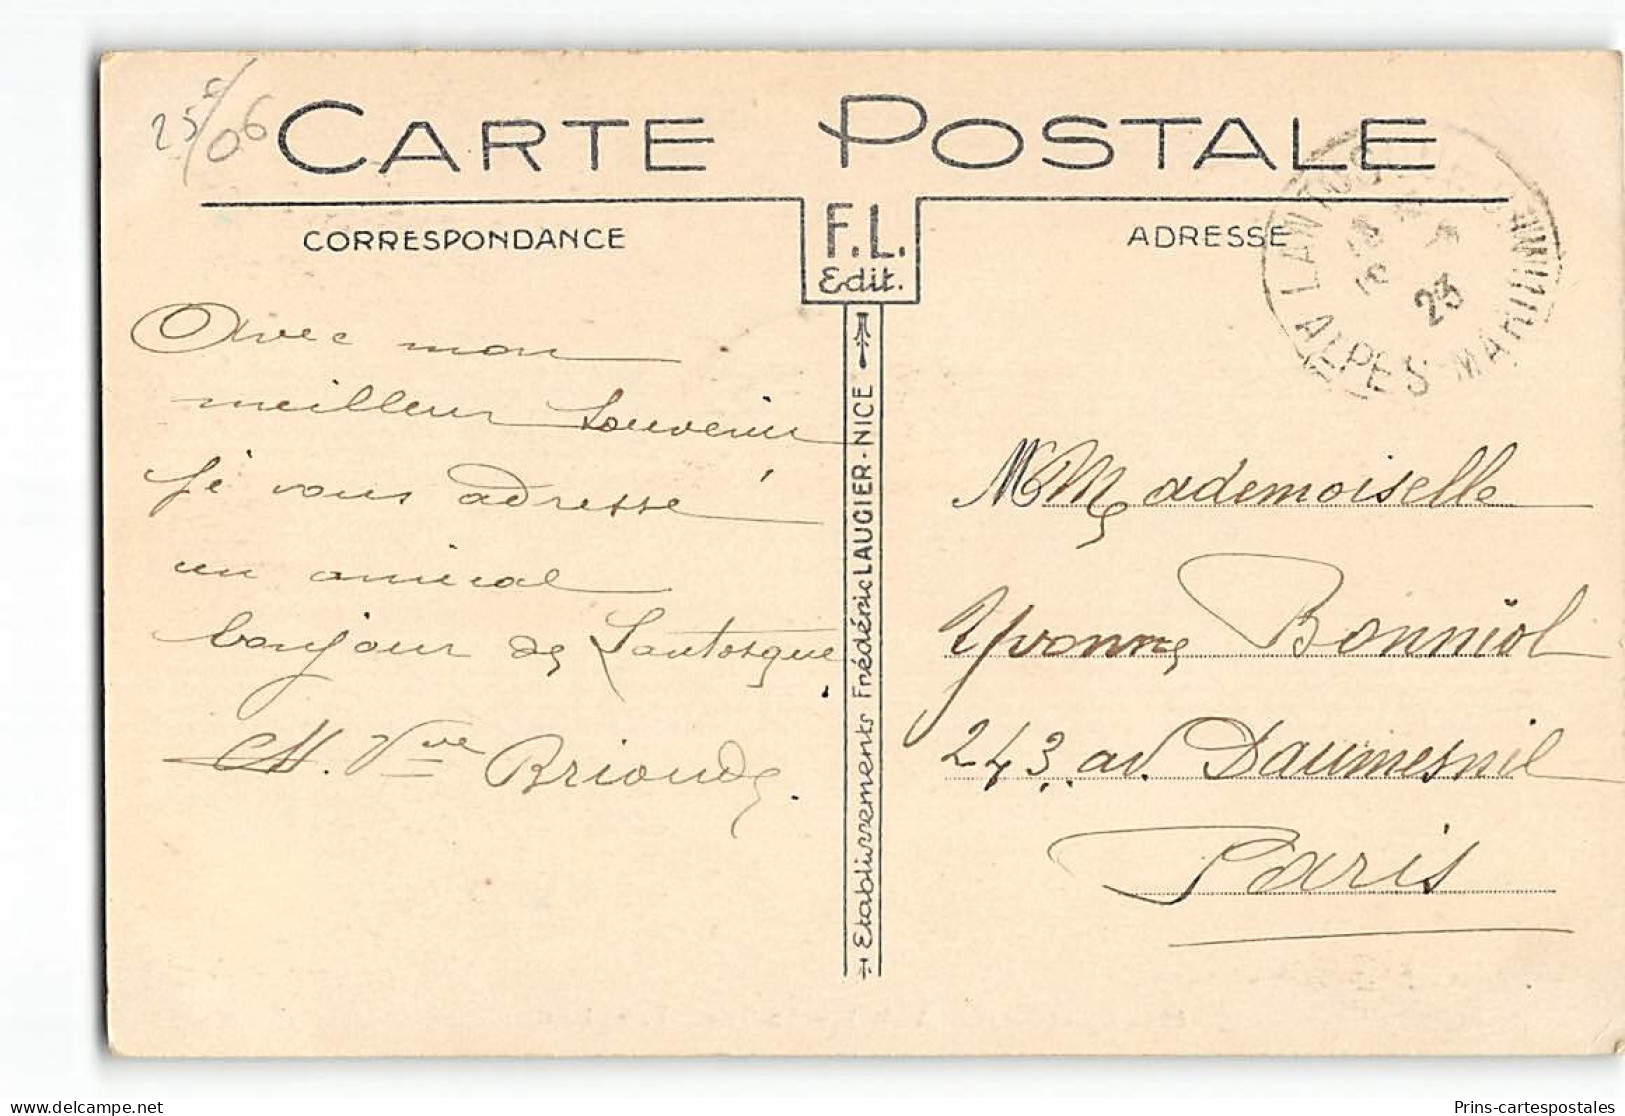 25f/06
CARTE POSTALE
CORRESPONDANCE
F.L.
Edit.
ADRESSE
LANTOSQUE
23
ALPES MARITIMES
Avec mon
meilleur souvenir
je vous adresse
un amical
bonjour de Lantosque.
M. Vve Brioude.
Etablissements Frédéric LAUGIER - NICE
Mademoiselle
Yvonne Bonniol
243 av. Daumesnil
Paris
delcampe.net
Prins-cartespostales